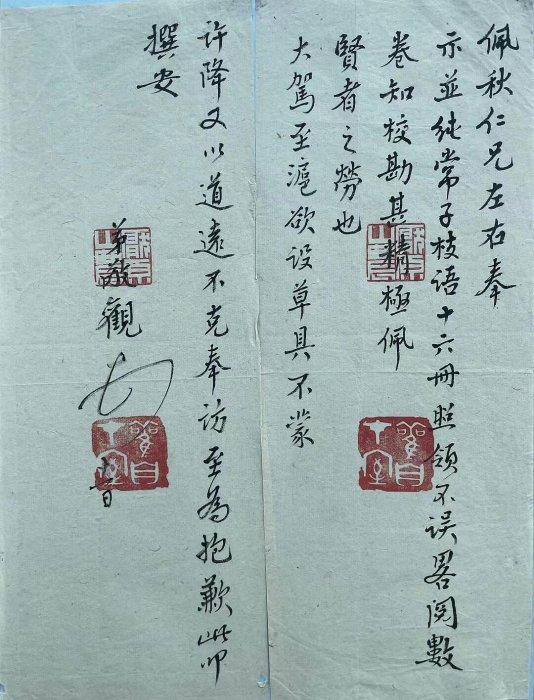 佩秋仁兄左右奉
示並純常子枝语十六冊照领不误畧阅數
卷知校勘其精極佩
賢者之勞也
大駕至滬欲设草具不蒙
许降又以道遠不克奉访至為抱歉此叩
撰安
弟敬觀